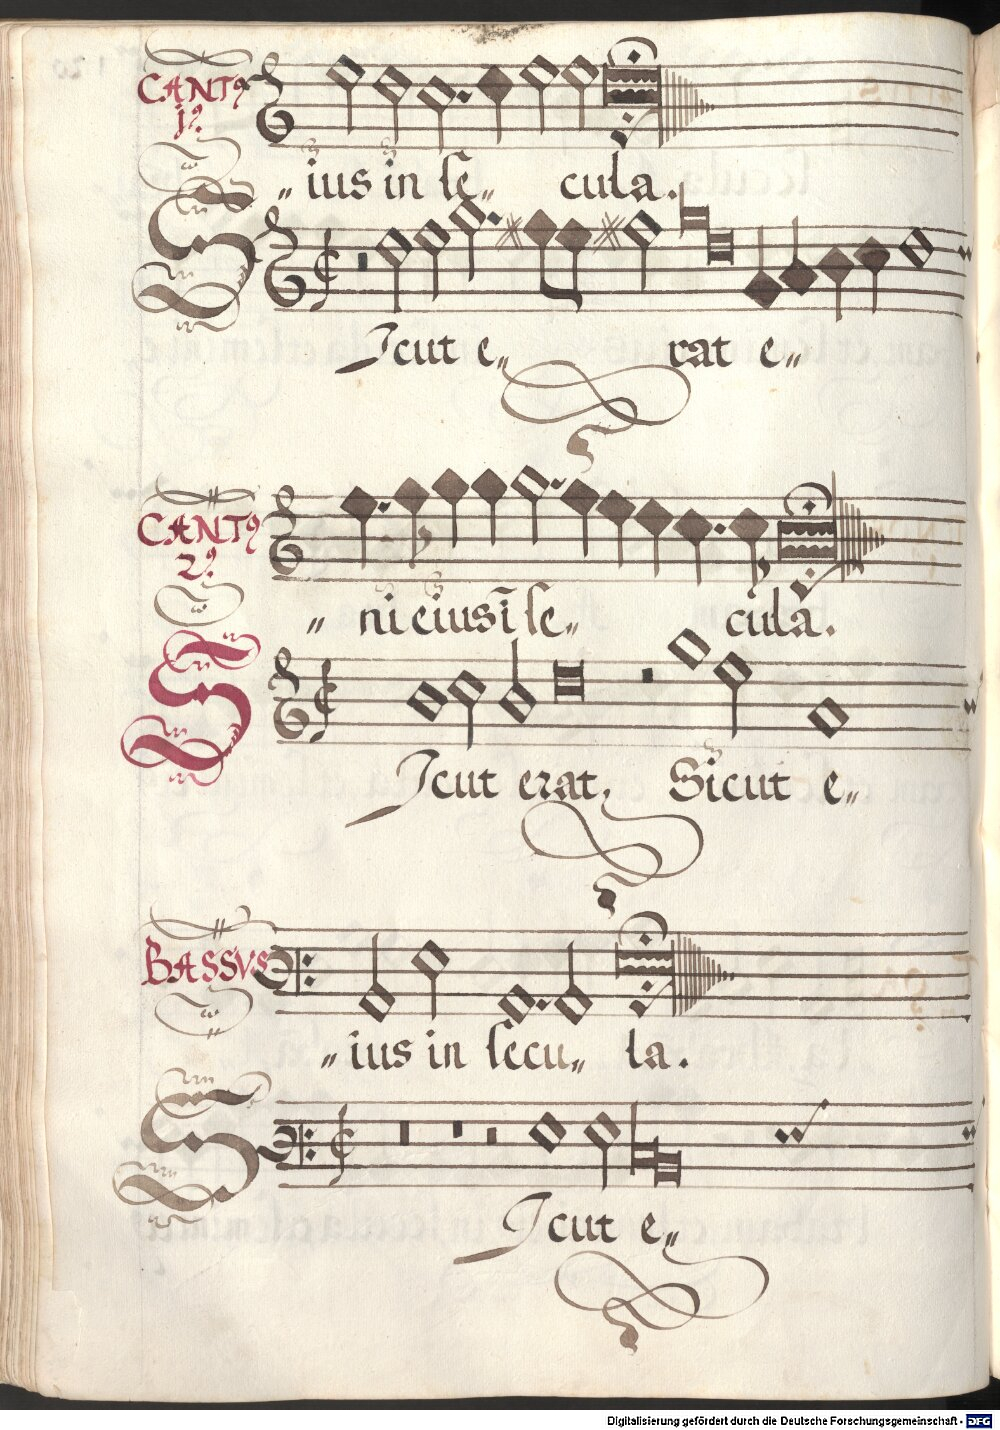 CANTꝰ
jꝰ.
„ ius in ſe„ cula.
Sicut e„ rat e„
CANTꝰ
2ꝰ.
„ ni eiusī ſe„ cula.
Sicut erat, Sicut e„
BASSVS
„ ius in ſecu„ la.
Sicut e„
Digitalisierung gefördert durch die Deutsche Forschungsgemeinschaft - DFG